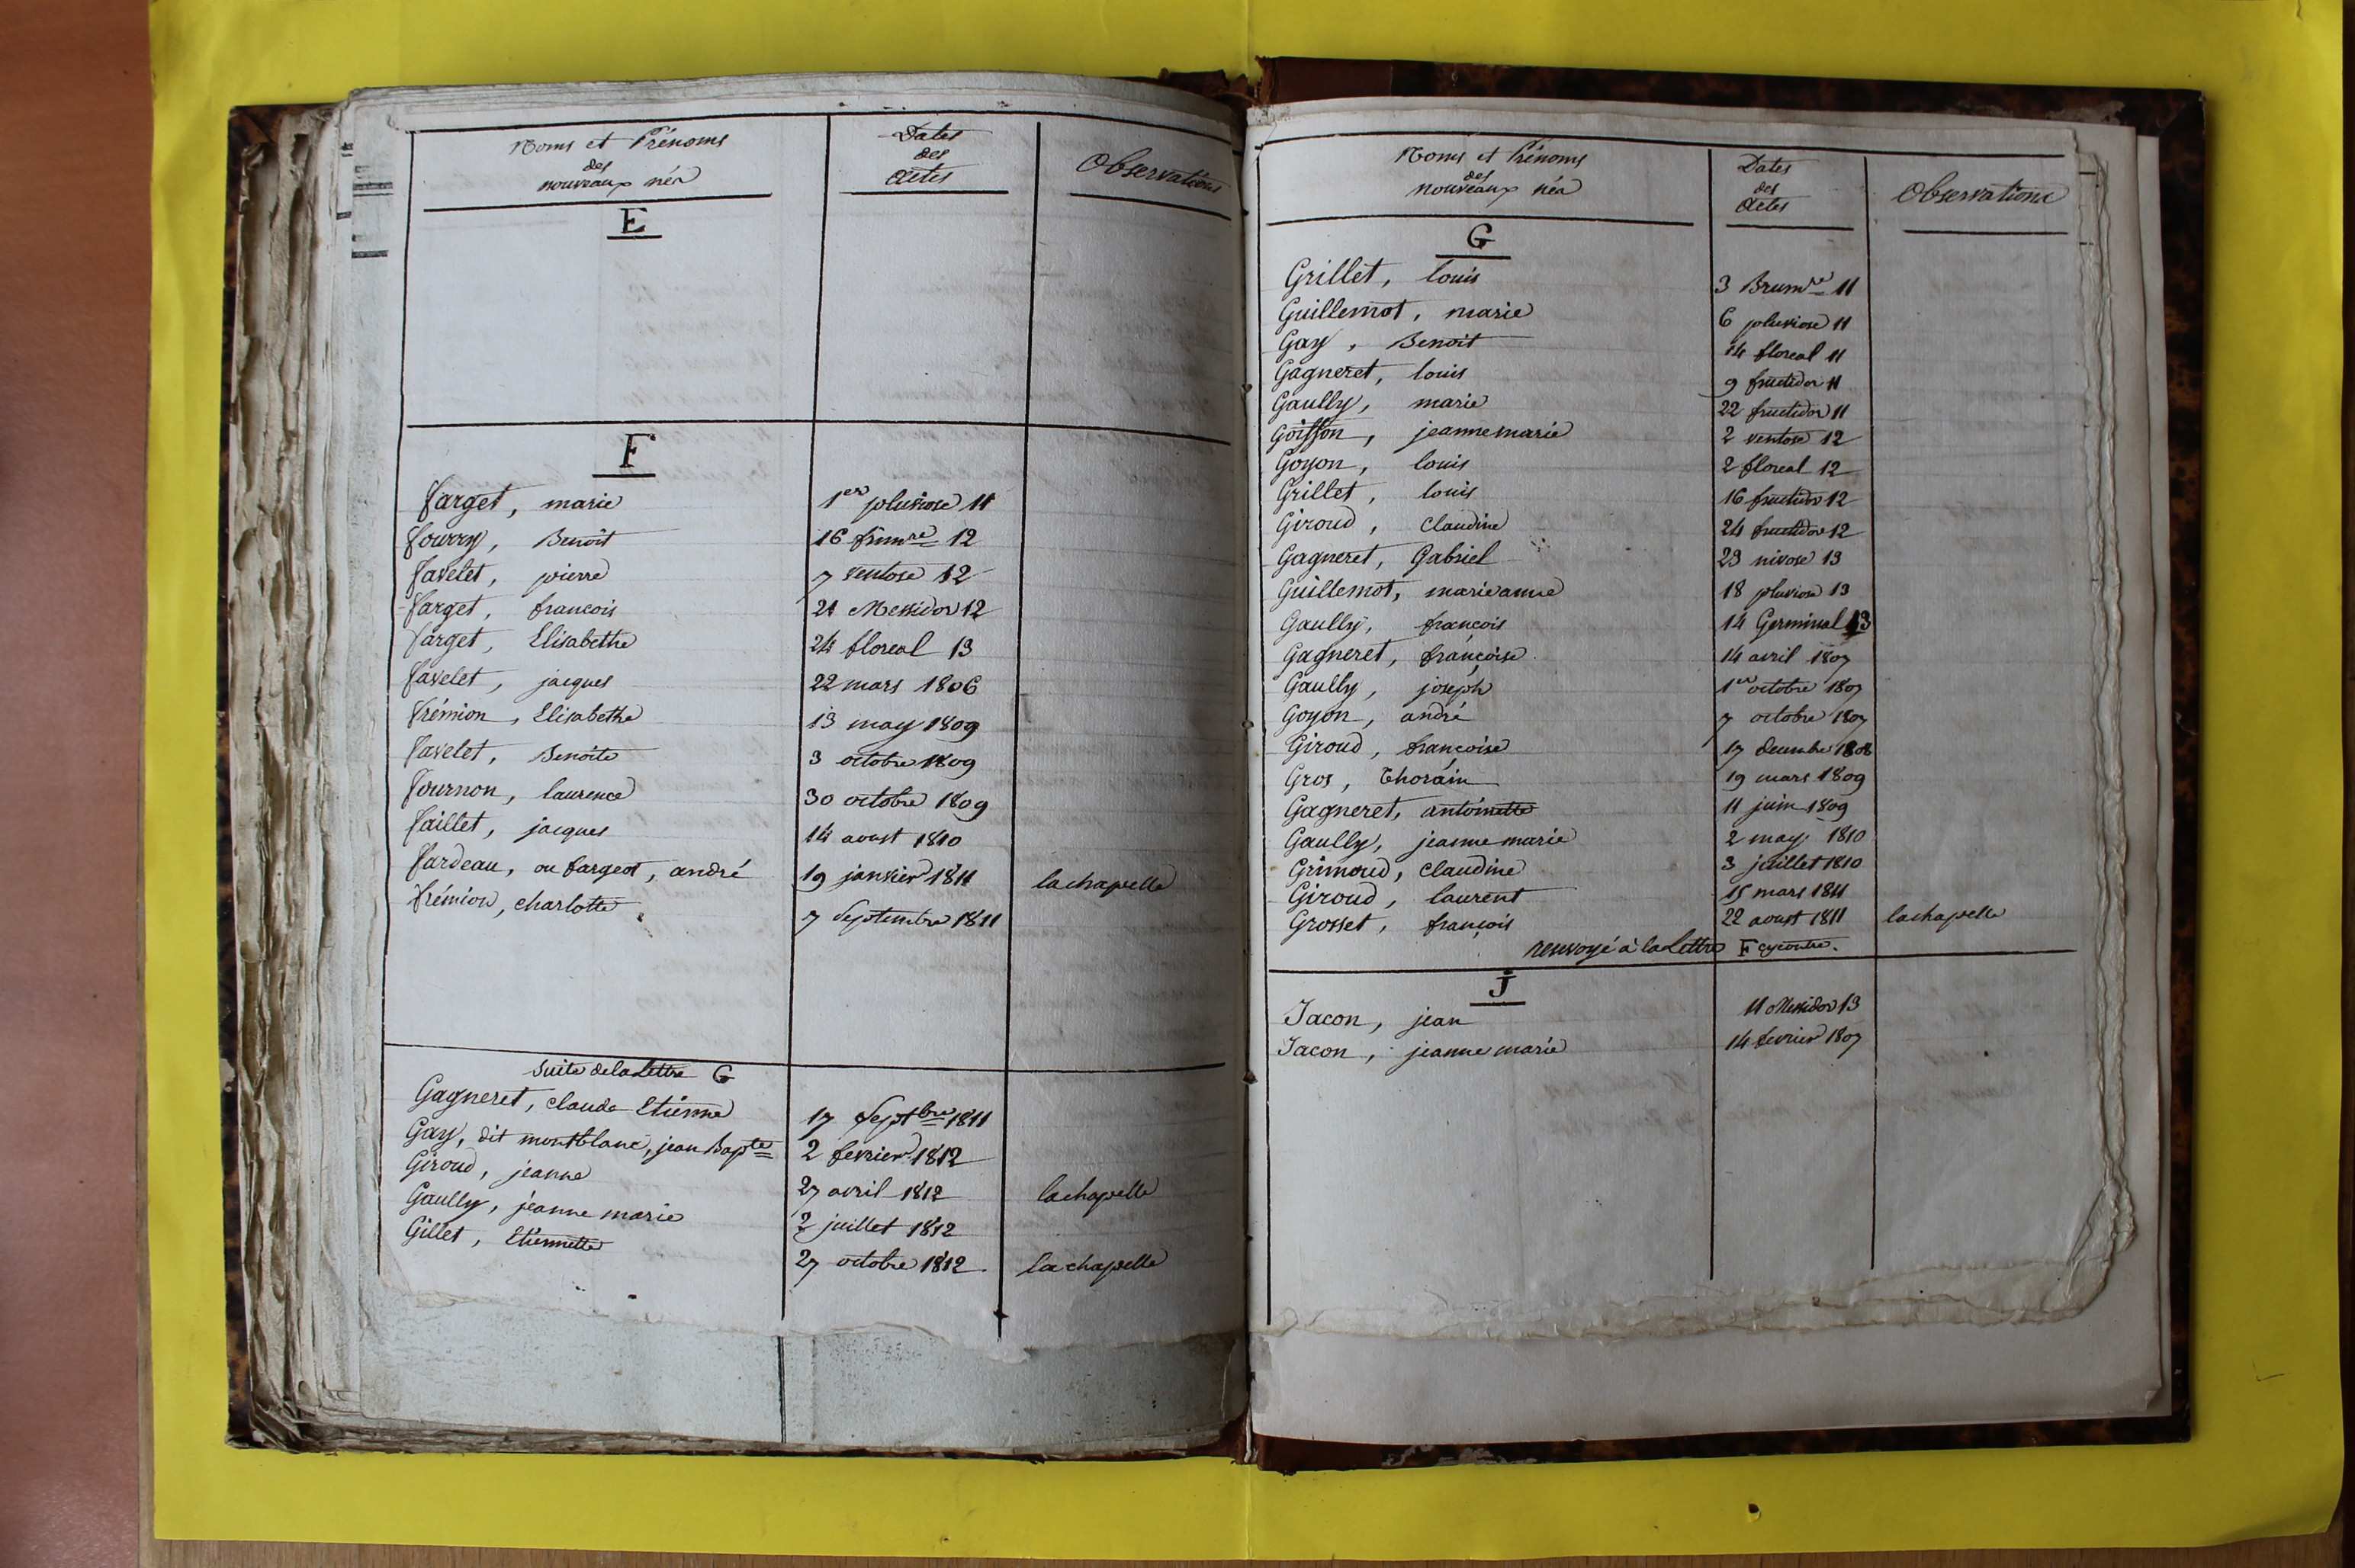 Noms et Prénoms
des
nouveaux nés
Dates
des
Actes
Observations
E
F
Farget, marie 1er pluviose 11
fourry, Benoit 16 frimre 12
favelet, pierre 7 ventose 12
Farget, francois 21 Messidor 12
Farget, Elisabethe 24 floreal 13
favelet, jacques 22 mars 1806
frémion, Elisabethe 13 may 1809
favelet, Benoite 3 octobre 1809
fournon, laurence 30 octobre 1809
faillet, jacques 14 aoust 1810
fardeau, ou fargeot, andré 19 janvier 1811 lachapelle
frémion, charlotte 7 Septembre 1811
Suite de la Lettre G
Gagneret, claude Etienne 17 Septbre 1811
Gay, dit montblanc, jean Bapte 2 fevrier 1812
Giroud, jeanne 27 avril 1812 lachapelle
Gaully, jeanne marie 2 juillet 1812
Gillet, Etiennette 27 octobre 1812 la chapelle
Noms et Prénoms
des
nouveaux nés
Dates
des
Actes
Observations
G
Grillet, louis 3 Brumre 11
Guillemot, marie 6 pluviose 11
Gay, Benoit 14 floreal 11
Gagneret, louis 9 fructidor 11
Gaully, marie 22 fructidor 11
Goiffon, jeanne marie 2 ventose 12
Goyon, louis 2 floreal 12
Grillet, louis 16 fructidor 12
Giroud, Claudine 24 fructidor 12
Gagneret, Gabriel 23 nivose 13
Guillemot, marie anne 18 pluviose 13
Gaully, françois 14 Germinal 13
Gagneret, françoise 14 avril 1807
Gaully, joseph 1er octobre 1807
Goyon, andré 7 octobre 1807
Giroud, françoise 17 decembre 1808
Gros, Thorain 19 mars 1809
Gagneret, antoinette 11 juin 1809
Gaully, jeanne marie 2 may 1810
Grimoud, Claudine 3 juillet 1810
Giroud, laurent 15 mars 1811
Grosset, françois 22 aoust 1811 lachapelle
renvoyé à la Lettre F cycontre.
J
Jacon, jean 11 Messidor 13
Jacon, jeanne marie 14 fevrier 1807